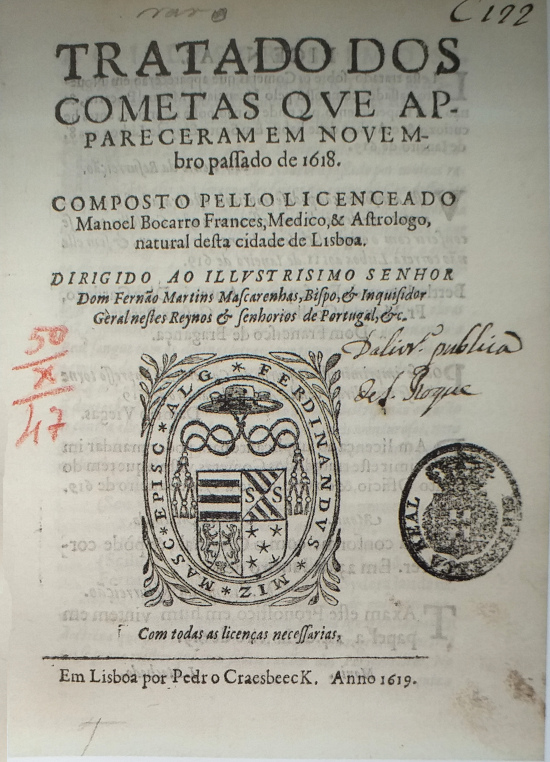 raro
C 122
TRATADO DOS
COMETAS QVE AP-
PARECERAM EM NOVEM-
bro paſſado de 1618.
COMPOSTO PELLO LICENCEADO
Manoel Bocarro Frances, Medico, & Aſtrologo,
natural deſta cidade de Lisboa.
DIRIGIDO AO ILLVSTRISIMO SENHOR
Dom Fernão Martins Maſcarenhas, Biſpo, & Inquiſidor
Gèral neſtes Reynos & ſenhorios de Portugal, &c.
50
X
47
Da livr. publica
de S. Roque
FERDINANDVS MIZ MASC * EPISC * ALG *
S S
REAL
Com todas as licenças neceſſarias,
Em Lisboa por Pedro CraesbeecK. Anno 1619.